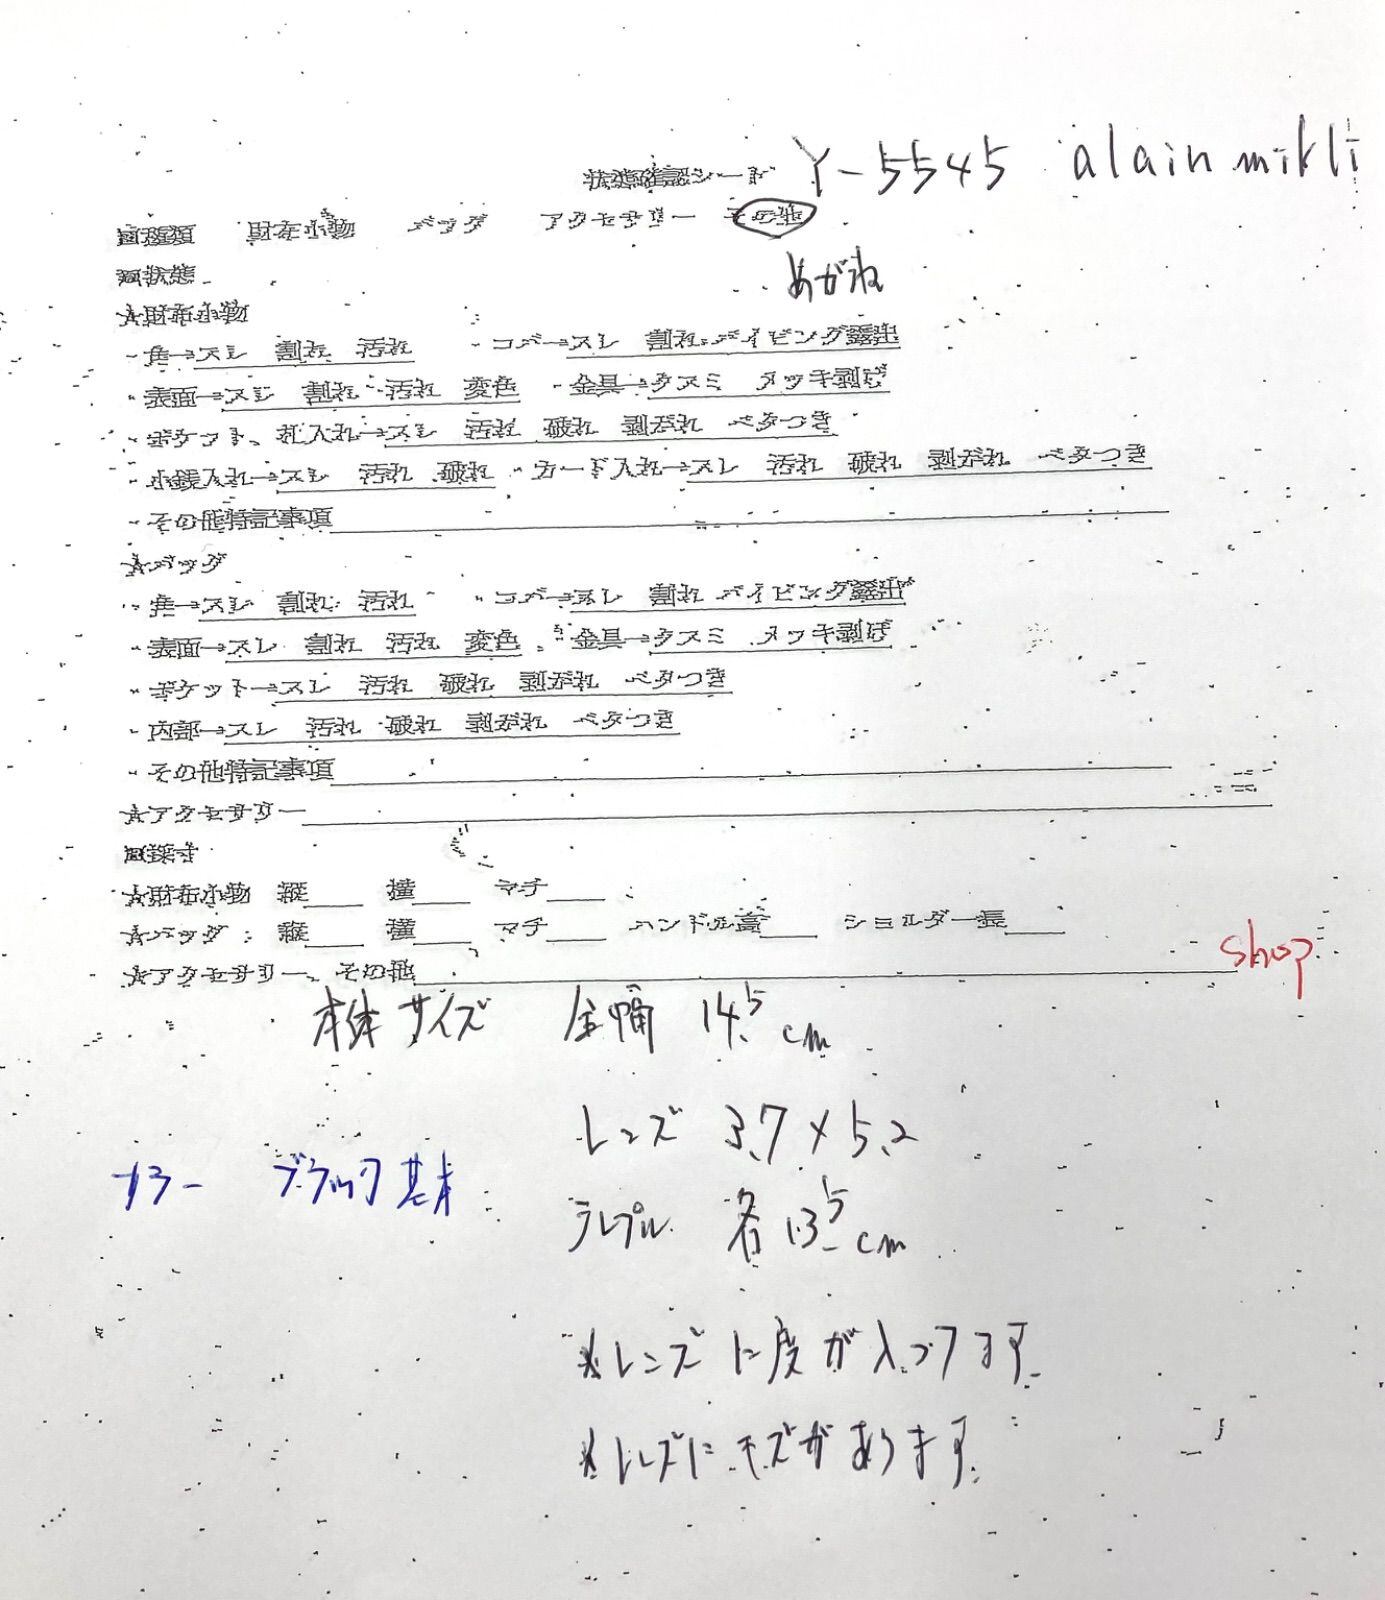 状態確認シート Y-5545 alain mikli
□種類 財布小物 バッグ アクセサリー その他
めがね
□状態
☆財布小物
・角→スレ 割れ 汚れ ・コバ→スレ 割れ パイピング露出
・表面→スレ 割れ 汚れ 変色 ・金具→クスミ メッキ剥げ
・ポケット、札入れ→スレ 汚れ 破れ 剥がれ ベタつき
・小銭入れ→スレ 汚れ 破れ ・カード入れ→スレ 汚れ 破れ 剥がれ ベタつき
・その他特記事項
☆バッグ
・角→スレ 割れ 汚れ ・コバ→スレ 割れ パイピング露出
・表面→スレ 割れ 汚れ 変色 ・金具→クスミ メッキ剥げ
・ポケット→スレ 汚れ 破れ 剥がれ ベタつき
・内部→スレ 汚れ 破れ 剥がれ ベタつき
・その他特記事項
☆アクセサリー
□採寸
☆財布小物 縦 横 マチ
☆バッグ 縦 横 マチ ハンドル高 ショルダー長
☆アクセサリー、その他
shop
本体サイズ 全幅 14.5cm
レンズ 3.7×5.2
カラー ブラック基本
テンプル 各13.5cm
※レンズに度が入ってます
※レンズにキズがあります